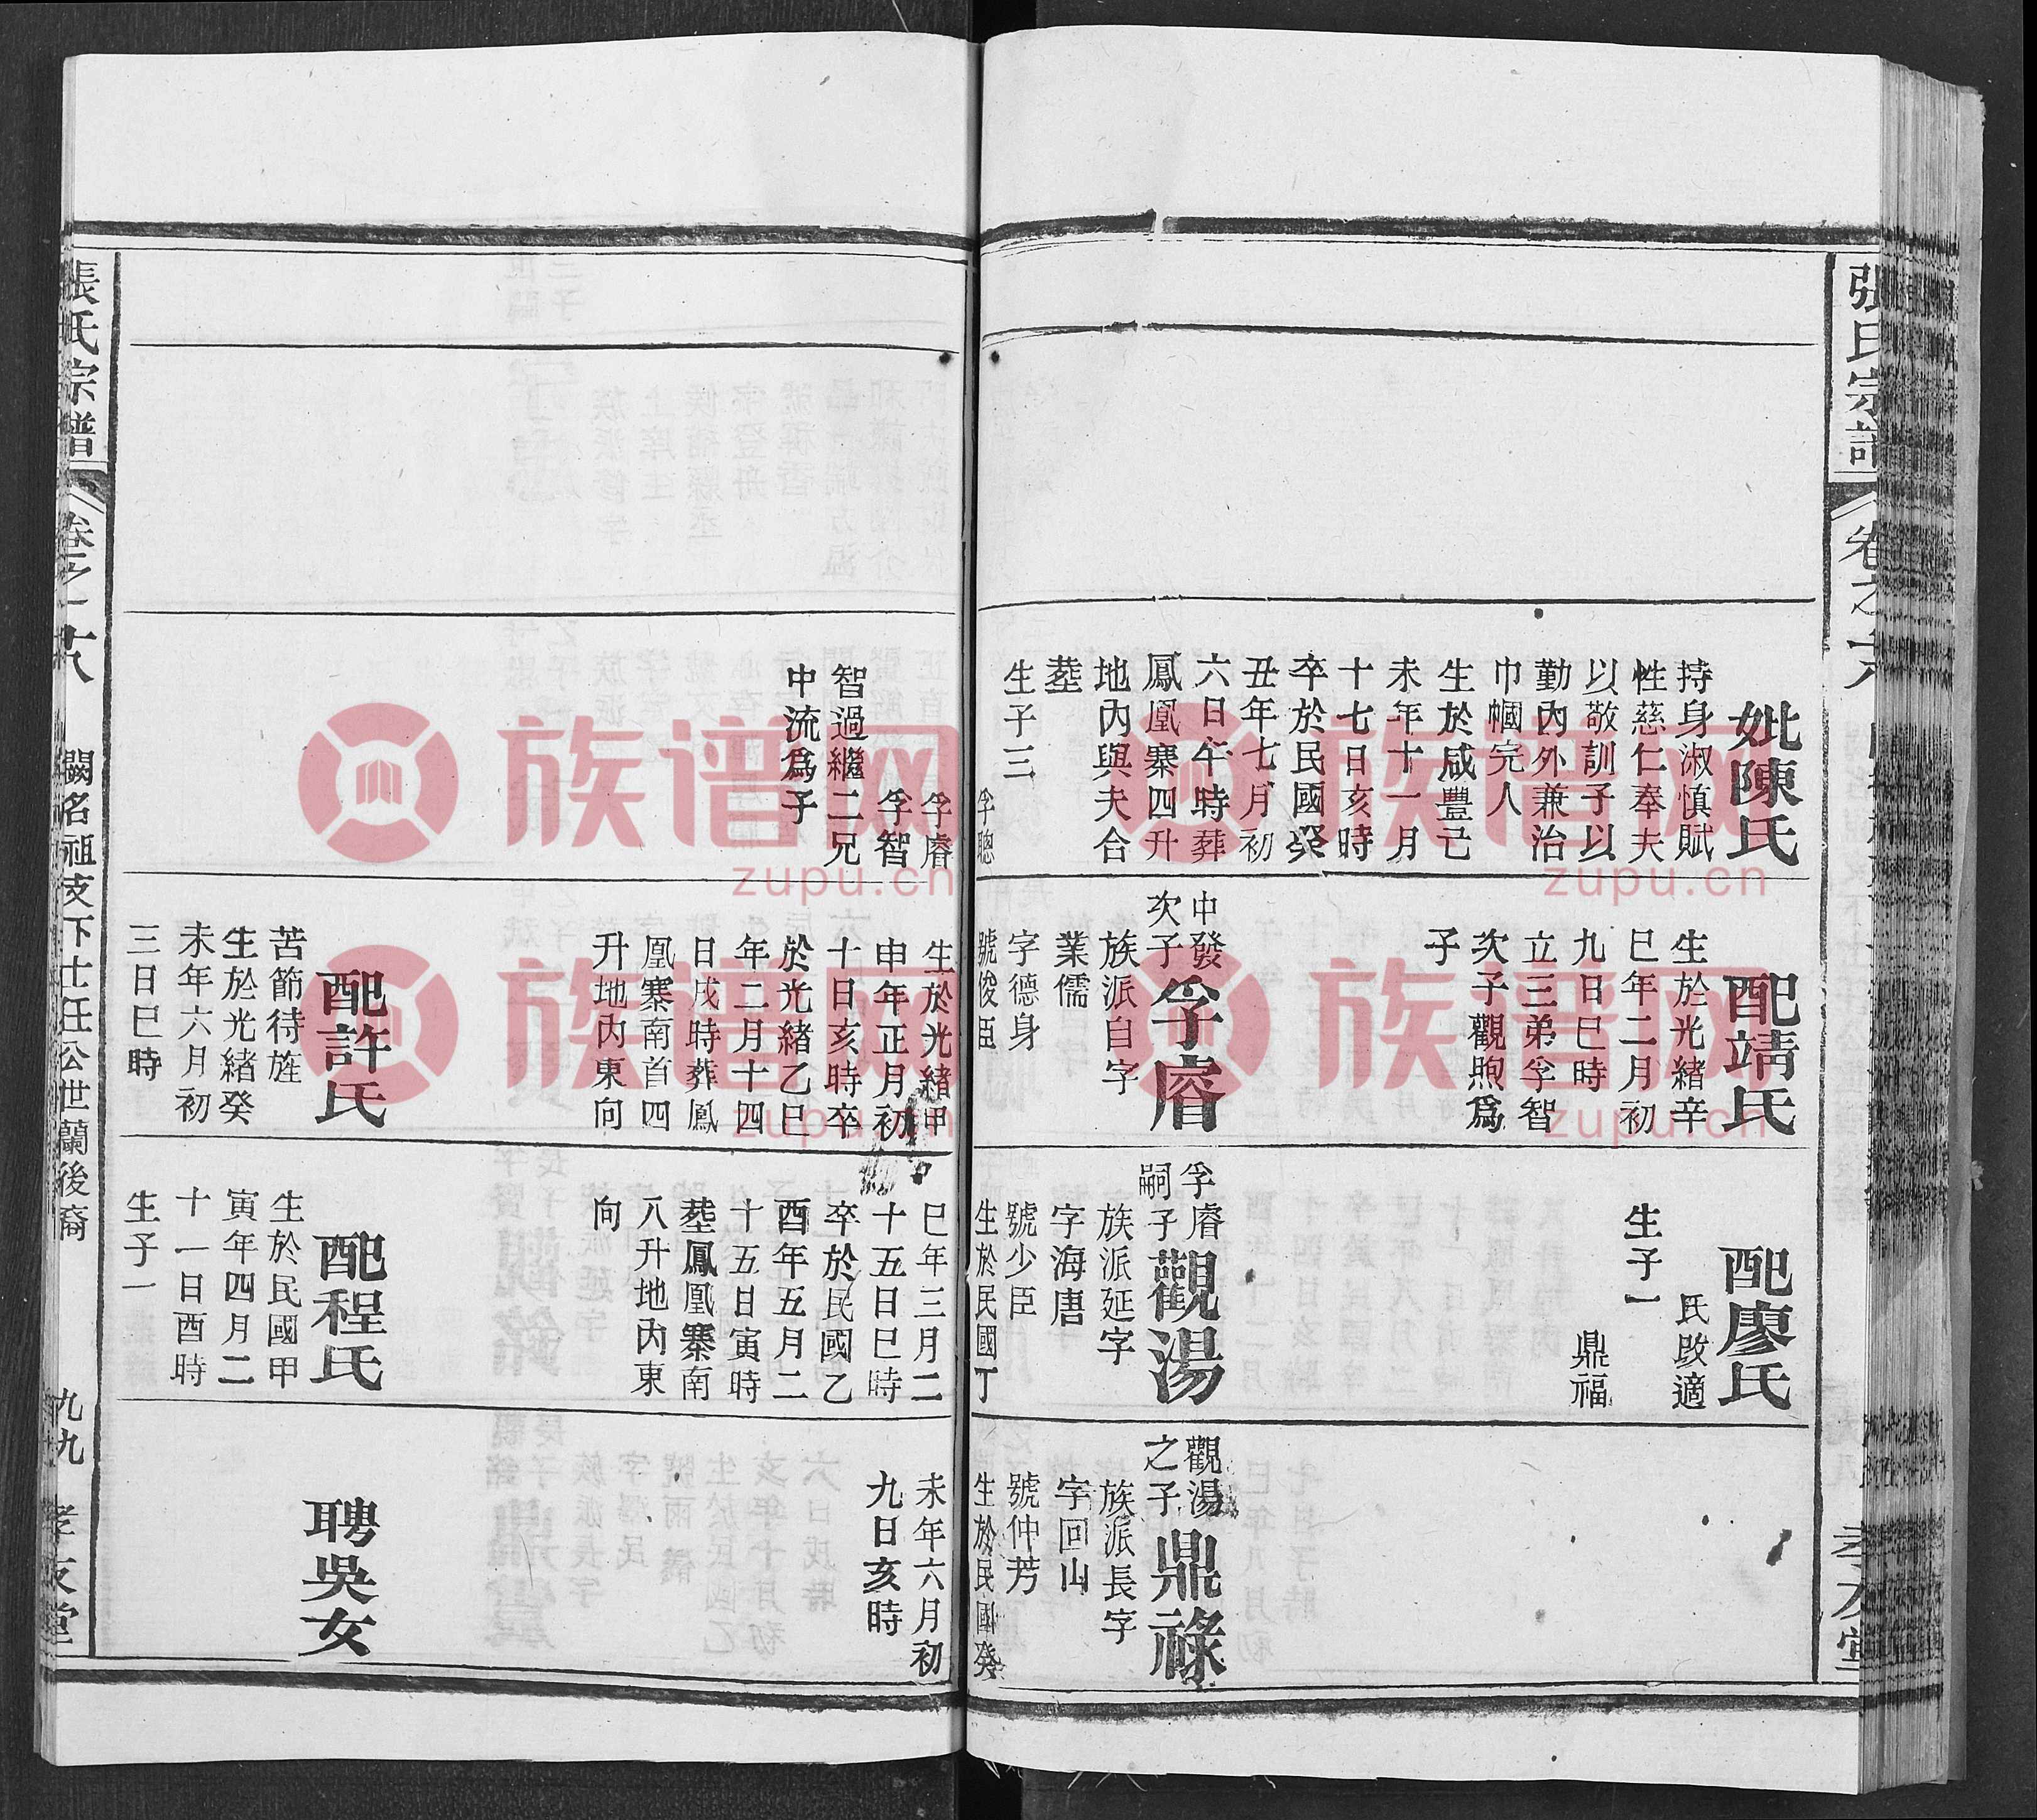 妣陳氏
持身淑慎賦
性慈仁奉夫
以敬訓子以
勤內外兼治
巾幗完人
生於咸豐己
未年十一月
十七日亥時
卒於民國癸
丑年七月初
六日午時葬
鳳凰寨四升
地內與夫合
塟
生子三
孚聰
配靖氏
生於光緒辛
巳年二月初
九日巳時
立三弟孚智
次子觀煦爲
子
中發
次子
孚睿
族派自字
業儒
字德身
號俊臣
配廖氏
氏改適
生子一
鼎福
孚睿
嗣子
觀湯
族派延字
字海唐
號少臣
生於民國丁
觀湯
之子
鼎祿
族派長字
字回山
號仲芳
生於民國癸
孚睿
孚智
智過繼二兄
中流爲子
生於光緒甲
申年正月初
十日亥時卒
於光緒乙巳
年二月十四
日戌時葬鳳
凰寨南首四
升地內東向
配許氏
苦節待旌
生於光緒癸
未年六月初
三日巳時
巳年三月二
十五日巳時
卒於民國乙
酉年五月二
十五日寅時
塟鳳凰寨南
八升地內東
向
配程氏
生於民國甲
寅年四月二
十一日酉時
生子一
未年六月初
九日亥時
聘吳女
張氏宗譜
卷之十八
閥名祖支下士任公世蘭後裔
九九
孝友堂
族谱网
zupu.cn
族谱网
zupu.cn
族谱网
zupu.cn
族谱网
zupu.cn